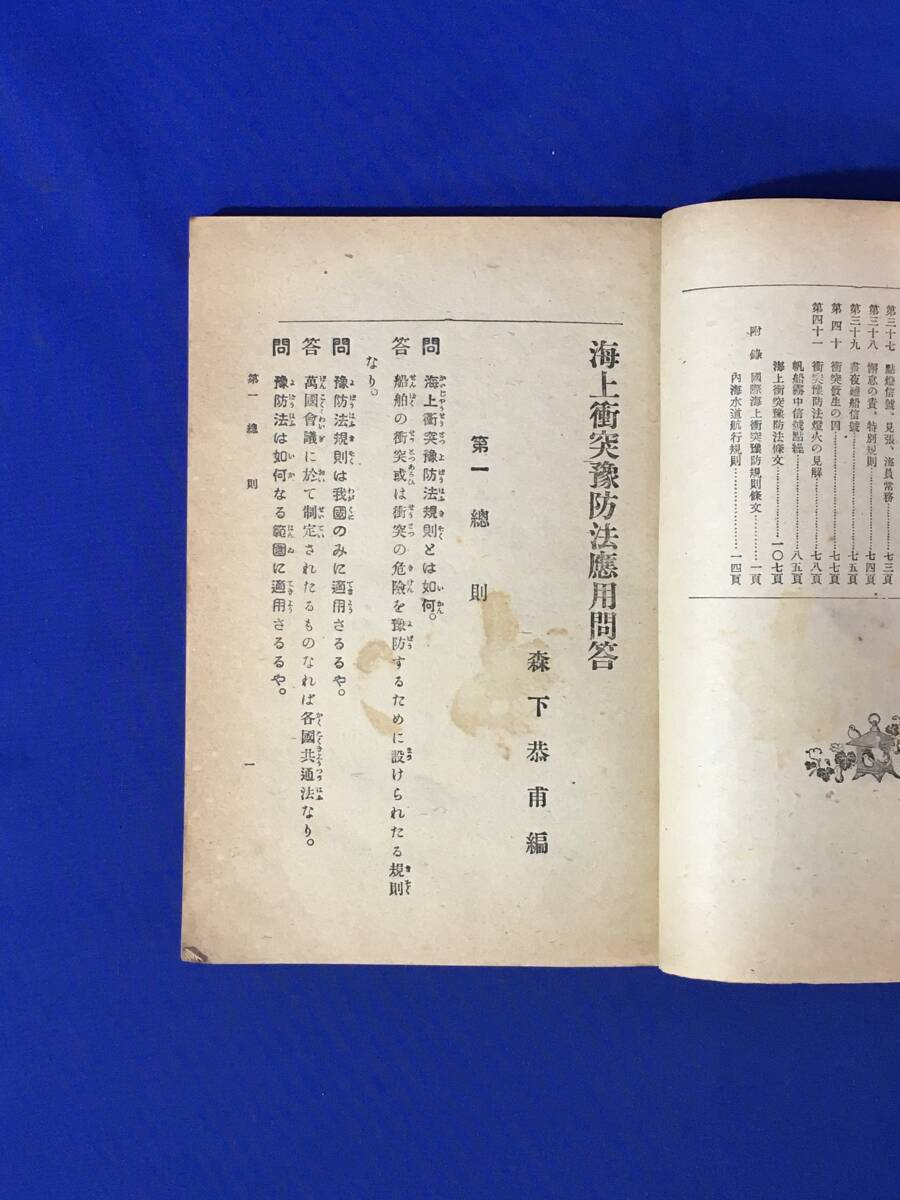 第三十七　點燈信號、見張、海員常務………七三頁
第三十八　懈怠の責、特別規則………七四頁
第三十九　晝夜通船信號………七五頁
第四十　衝突發生の因………七七頁
第四十一　衝突豫防法燈火の見解………七八頁
帆船霧中信號點鐘………八五頁
海上衝突豫防法條文………一〇七頁
附錄　國際海上衝突豫防規則條文………一頁
內海水道航行規則………一四頁
海上衝突豫防法應用問答
森下恭甫編
第一　總則
問　海上衝突豫防法規則とは如何。
答　船舶の衝突或は衝突の危險を豫防するために設けられたる規則
なり。
問　豫防法規則は我國のみに適用さるるや。
答　萬國會議に於て制定されたるものなれば各國共通法なり。
問　豫防法は如何なる範圍に適用さるるや。
第一　總則
一